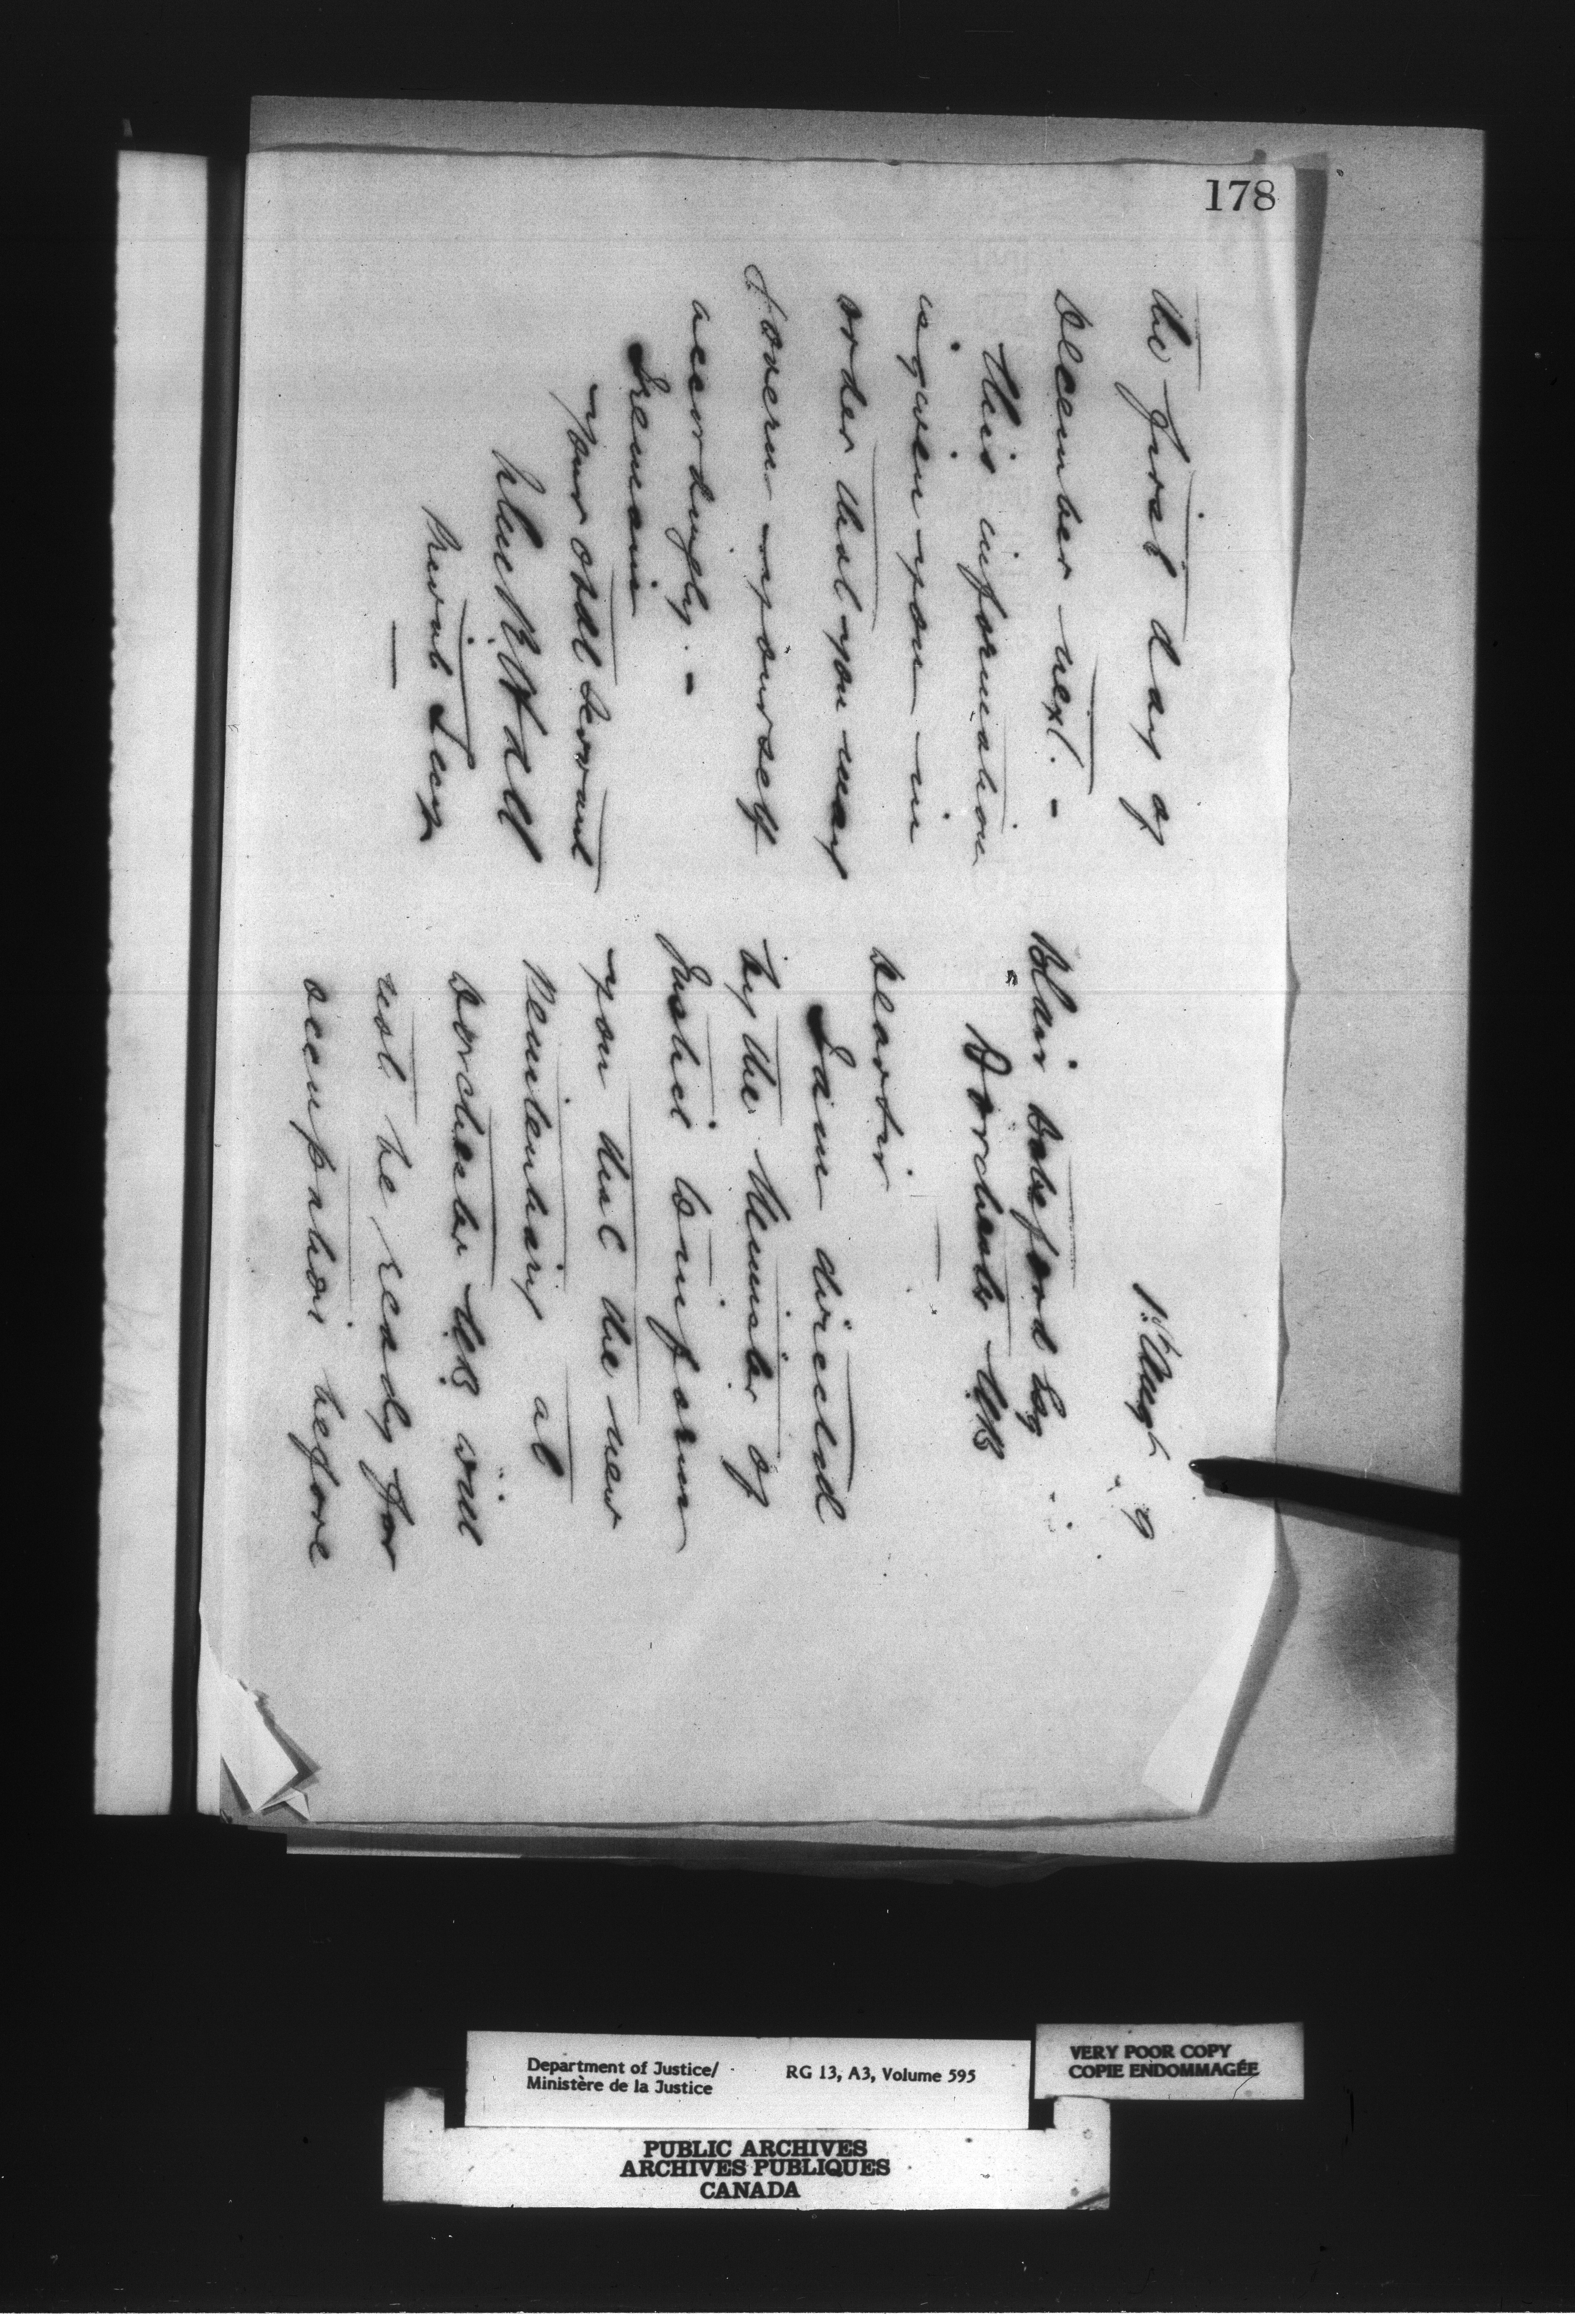 178
1st Augt 9
Blair Botsford Esq
Dorchester NB
Dear Sir
I am directed
by the Minister of
Justice to inform
you that the new
Penitentiary at
Dorchester NB will
not be ready for
occupation before
the first day of
December next. -
This information
is given you in
order that you may
govern yourself
accordingly. -
I remain
your obdt Servant
Private Secy
Department of Justice/
Ministère de la Justice
RG 13, A3, Volume 595
VERY POOR COPY
COPIE ENDOMMAGÉE
PUBLIC ARCHIVES
ARCHIVES PUBLIQUES
CANADA